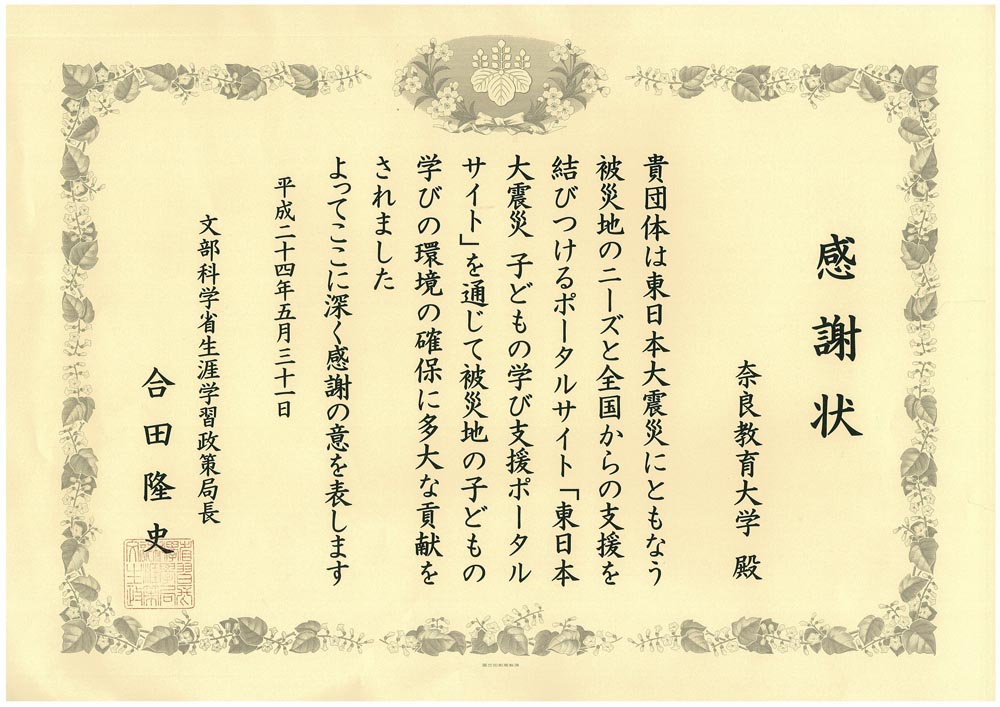 感謝状
奈良教育大学 殿
貴団体は東日本大震災にともなう
被災地のニーズと全国からの支援を
結びつけるポータルサイト「東日本
大震災 子どもの学び支援ポータル
サイト」を通じて被災地の子どもの
学びの環境の確保に多大な貢献を
されました
よってここに深く感謝の意を表します
平成二十四年五月三十一日
文部科学省生涯学習政策局長
合田隆史